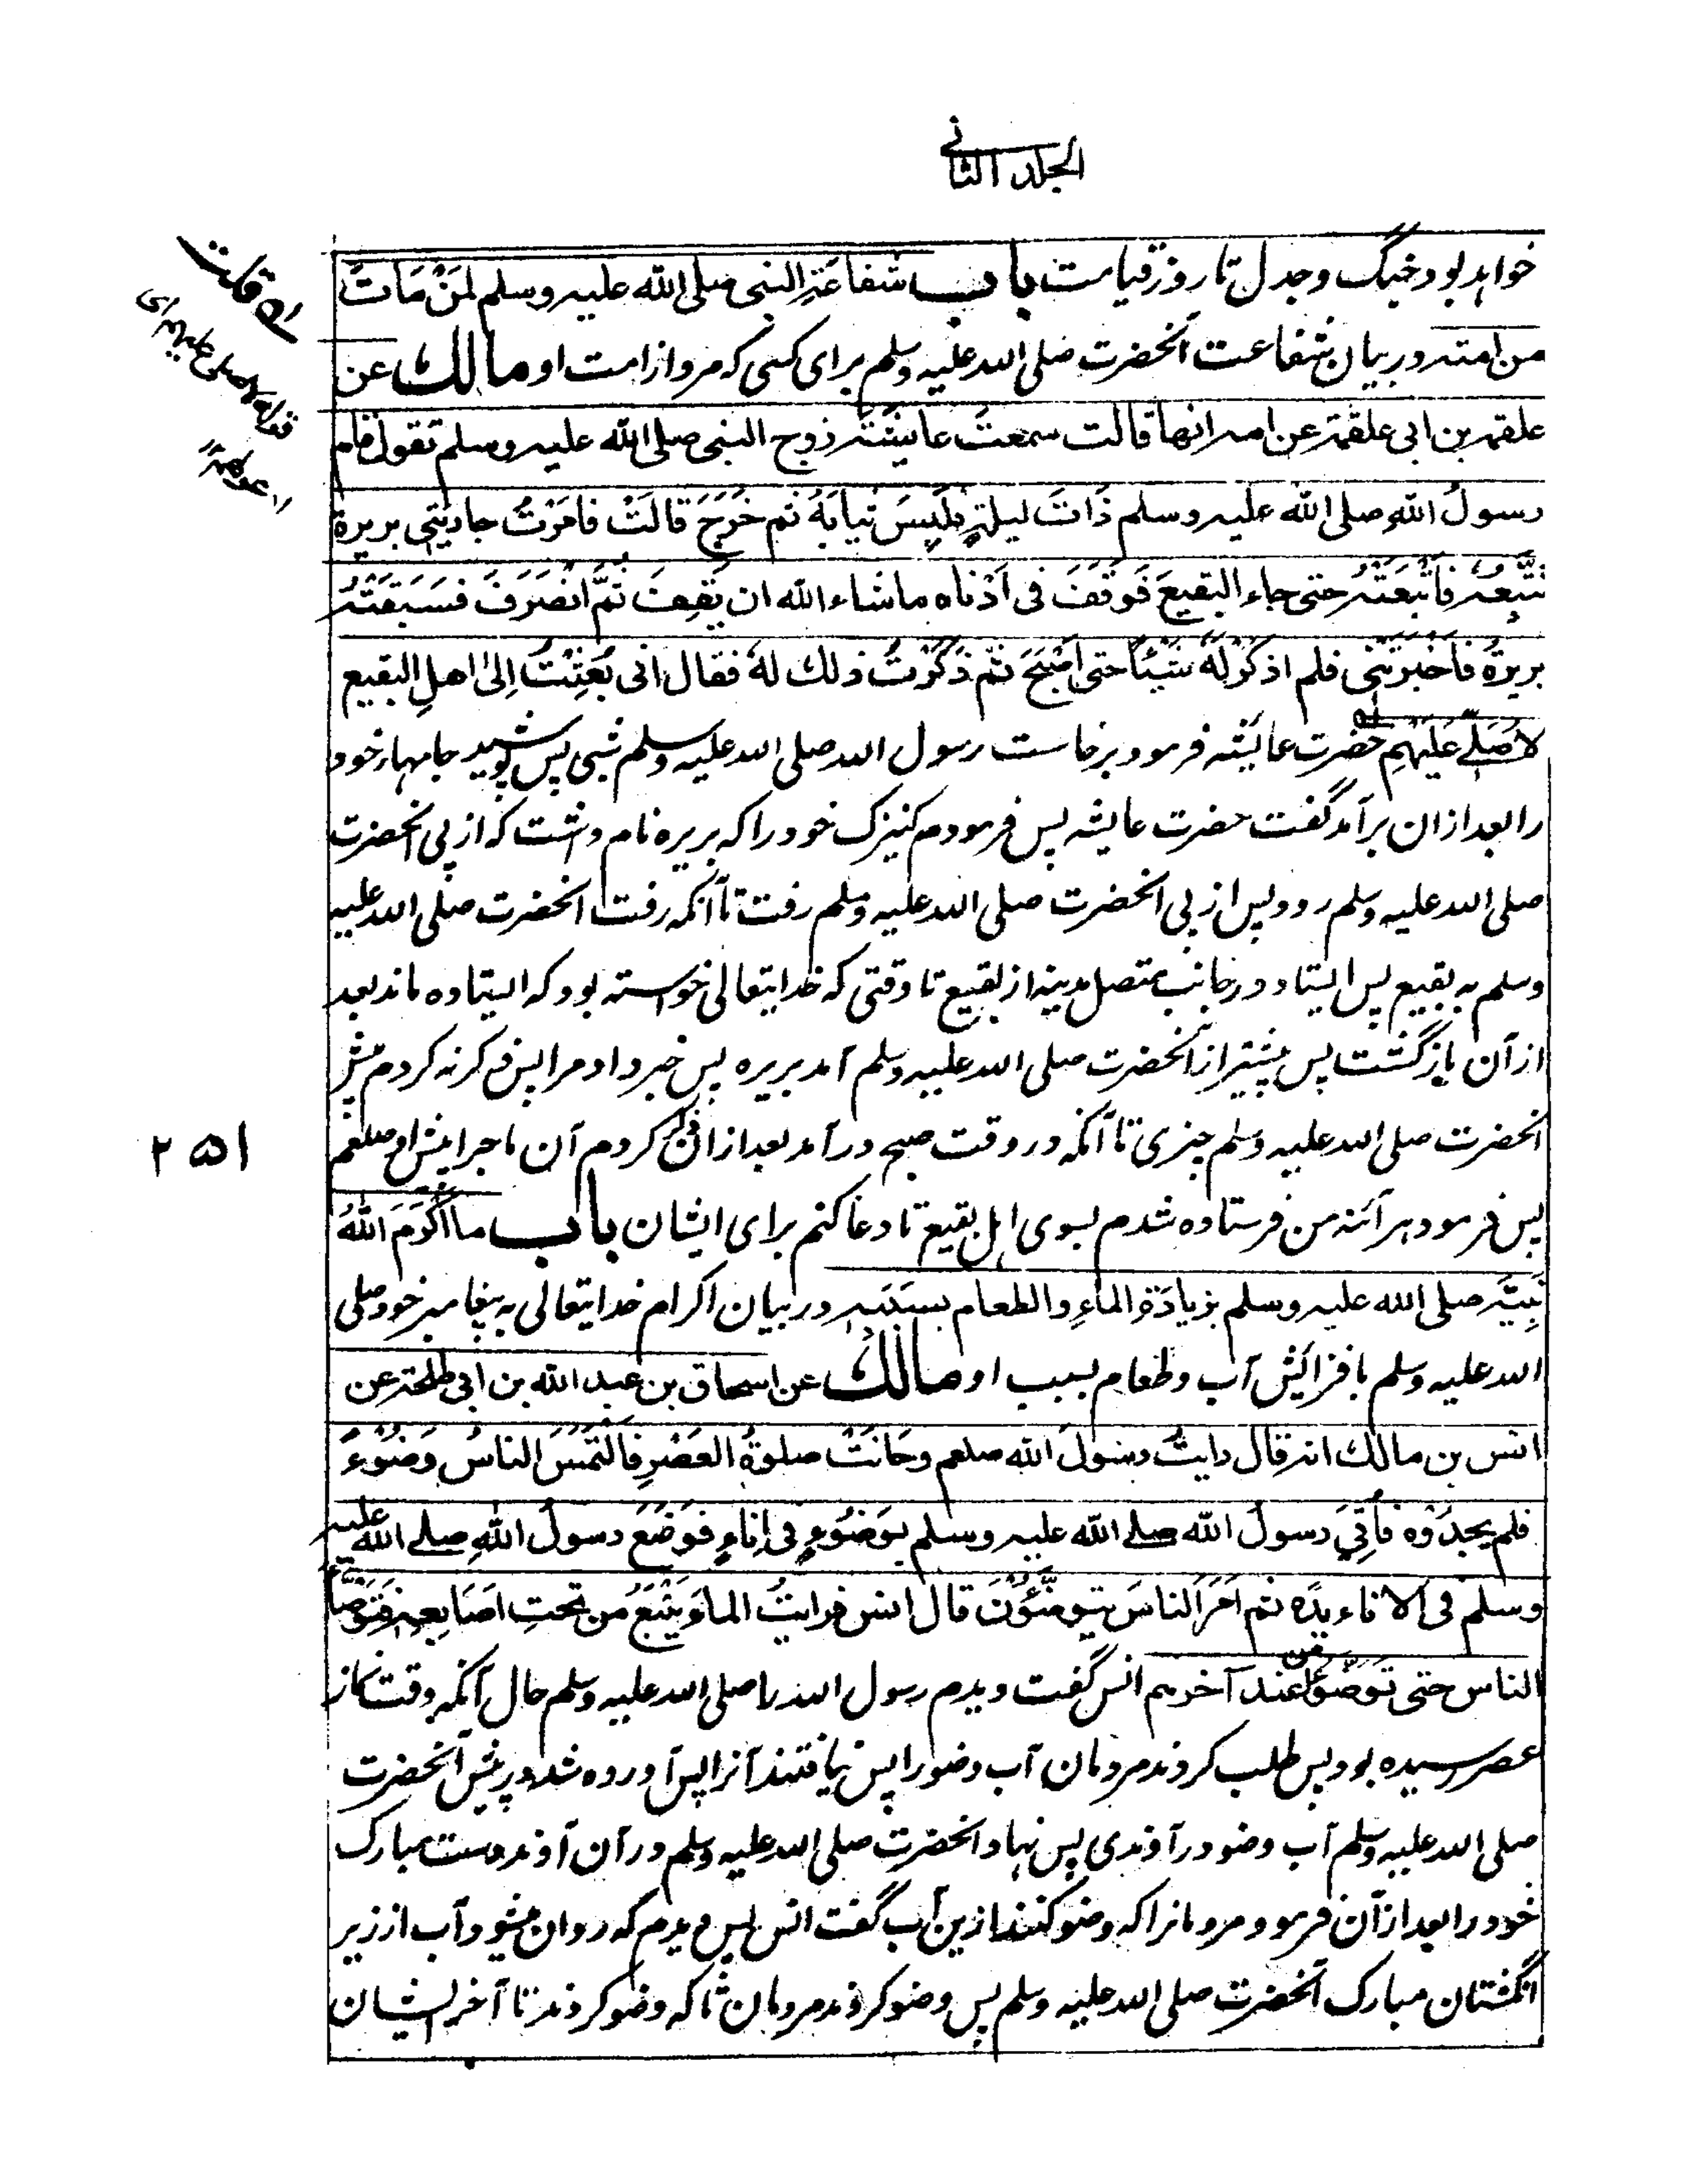 الجلد الثانی
خواہد بود جنگ و جدل تا روز قیامت باب شفاعۃ النبی صلی الله علیہ وسلم لِمَنْ مَاتَ
من امتہ در بیان شفاعت آنحضرت صلی اللہ علیہ وسلم برای کسی کہ مرد از امت او مالك عن
علقمۃ بن ابی علقمۃ عن امہ انھا قالت سمعتُ عایشۃَ زوج النبی صلی الله علیہ وسلم تقول قام
رسولُ اللهِ صلی الله علیہ وسلم ذَاتَ لیلۃٍ فلَبِسَ ثیابَہُ ثم خَرَجَ قالَتْ فامَرْتُ جاریَتِی بریرۃ
تَتَّبِعُہ فَاتَّبَعَتْہُ حتی جاء البقیعَ فَوَقَفَ فی اَدْناہ ماشاء الله ان یَقِفَ ثُمَّ انْصَرَفَ فسَبَقَتْہُ
بریرۃُ فاَخْبَرَتْنِی فلم اذکُرْ لہٗ شَیْئًا حتی اَصْبَحَ ثم ذَکَرْتُ ذلك لہٗ فقال انی بُعِثْتُ اِلٰی اھلِ البقیع
لاُصَلِّےَ عَلَیْہِمْ حضرت عایشہ فرمود برخاست رسول اللہ صلی اللہ علیہ وسلم شبی پس پوشید جامہا خود
را بعد ازان برآمد گفت حضرت عایشہ پس فرمودم کنیزک خود را کہ بریرہ نام داشت کہ از پی آنحضرت
صلی اللہ علیہ وسلم رود پس از پی آنحضرت صلی اللہ علیہ وسلم رفت تا آنکہ رفت آنحضرت صلی اللہ علیہ
وسلم بہ بقیع پس ایستاد در جانب متصل مدینہ از بقیع تا وقتی کہ خدایتعالی خواستہ بود کہ ایستادہ ماند بعد
از آن بازگشت پس پیشتر از آنحضرت صلی اللہ علیہ وسلم آمد بریرہ پس خبر داد مرا پس ذکر نہ کردم پیش
آنحضرت صلی اللہ علیہ وسلم چیزی تا آنکہ در وقت صبح درآمد بعد ازان ذکر کردم آن ماجرا پیش او صلعم
۲۵۱
پس فرمود ہر آئنہ من فرستادہ شدم بسوی اہل بقیع تا دعا کنم برای ایشان باب ما اَکْرَمَ اللهُ
نَبِیَّہ صلی الله علیہ وسلم بزیادَۃِ الماءِ والطعام بسببہ در بیان اکرام خدایتعالی بہ پیغامبر خود صلی
اللہ علیہ وسلم بافزایش آب و طعام بسبب او مالك عن اسحاق بن عبد الله بن ابی طلحۃ عن
انس بن مالك انہ قال رایتُ رسولَ الله صلعم وحَانَتْ صلوۃُ العَصْرِ فَالْتَمَسَ الناسُ وَضُوْءً
فلم یجدُوْہ فاُتِیَ رسولُ الله صلے الله علیہ وسلم بوَضُوْءٍ فی اِناءٍ فوَضَعَ رسولُ اللهِ صلے الله علیہ
وسلم فی الاناء یدَہ ثم اَمَرَ الناسَ یتوضَّئُوْنَ قال انس فرایتُ الماءَ یَنْبَعُ من تحتِ اَصَابِعِہ فتَوَضَّأَ
الناس حتی توضَّؤُا من عند آخرہم انس گفت دیدم رسول اللہ را صلی اللہ علیہ وسلم حال آنکہ وقت نماز
عصر رسیدہ بود پس طلب کردند مردمان آب وضو را پس نیافتند آنرا پس آوردہ شد در پیش آنحضرت
صلی اللہ علیہ وسلم آب وضو در آوندی پس نہاد آنحضرت صلی اللہ علیہ وسلم در آن آوند دست مبارک
خود را بعد از آن فرمود مردمانرا کہ وضو کنند ازین آب گفت انس پس دیدم کہ روان میشود آب از زیر
انگشتان مبارک آنحضرت صلی اللہ علیہ وسلم پس وضو کردند مردمان تا کہ وضو کردند تا آخر ایشان